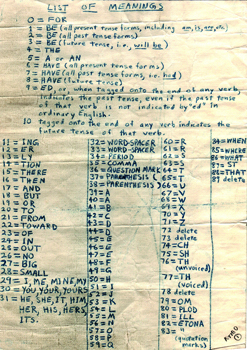 LIST OF MEANINGS
0 = FOR
1 = BE (all present tense forms, including am, is, are, etc)
2 = BE (all past tense forms)
3 = BE (future tense, i.e., will be)
4 = THE
5 = A OR AN
6 = HAVE (all present tense forms)
7 = HAVE (all past tense forms, i.e. had)
8 = HAVE (future tense)
9 = ED, or when tagged onto the end of any verb,
indicates the past tense, even if the past tense
of that verb is not indicated by 'ed' in
ordinary English.
10 tagged onto the end of any verb indicates the
future tense of that verb.
11 = ING
12 = ER
13 = LY
14 = TION
15 = THERE
16 = THEN
17 = AND
18 = BUT
19 = OR
20 = TO
21 = FROM
22 = TOWARD
23 = AT
24 = IN
25 = OUT
26 = NO
27 = BIG
28 = SMALL
29 = I, ME, MINE, MY
30 = YOU, YOUR, YOURS
31 = HE, SHE, IT, HIM,
HER, HIS, HERS,
ITS.
32 = WORD-SPACER
33 = WORD-SPACER
34 = PERIOD
35 = COMMA
36 = QUESTION MARK
37 = PARENTHESIS (
38 = PARENTHESIS )
39 = A
40 = A
41 = B
42 = C
43 = D
44 = E
45 = E
46 = E
47 = F
48 = G
49 = H
50 = I
51 = I
52 = J
53 = K
54 = L
55 = M
56 = N
57 = O
58 = P
59 = Q
60 = R
61 = R
62 = S
63 = S
64 = T
65 = T
66 = U
67 = V
68 = W
69 = X
70 = Y
71 = Z
72 delete
73 delete
74 = CH
75 = SH
76 = TH
(unvoiced)
77 = TH
(voiced)
78 delete
79 = OM
80 = PLOD
81 = ILL
82 = ETONA
83 = "
(quotation
marks)
84 = WHEN
86 = WHAT
87 = ST
88 = THAT
89 delete